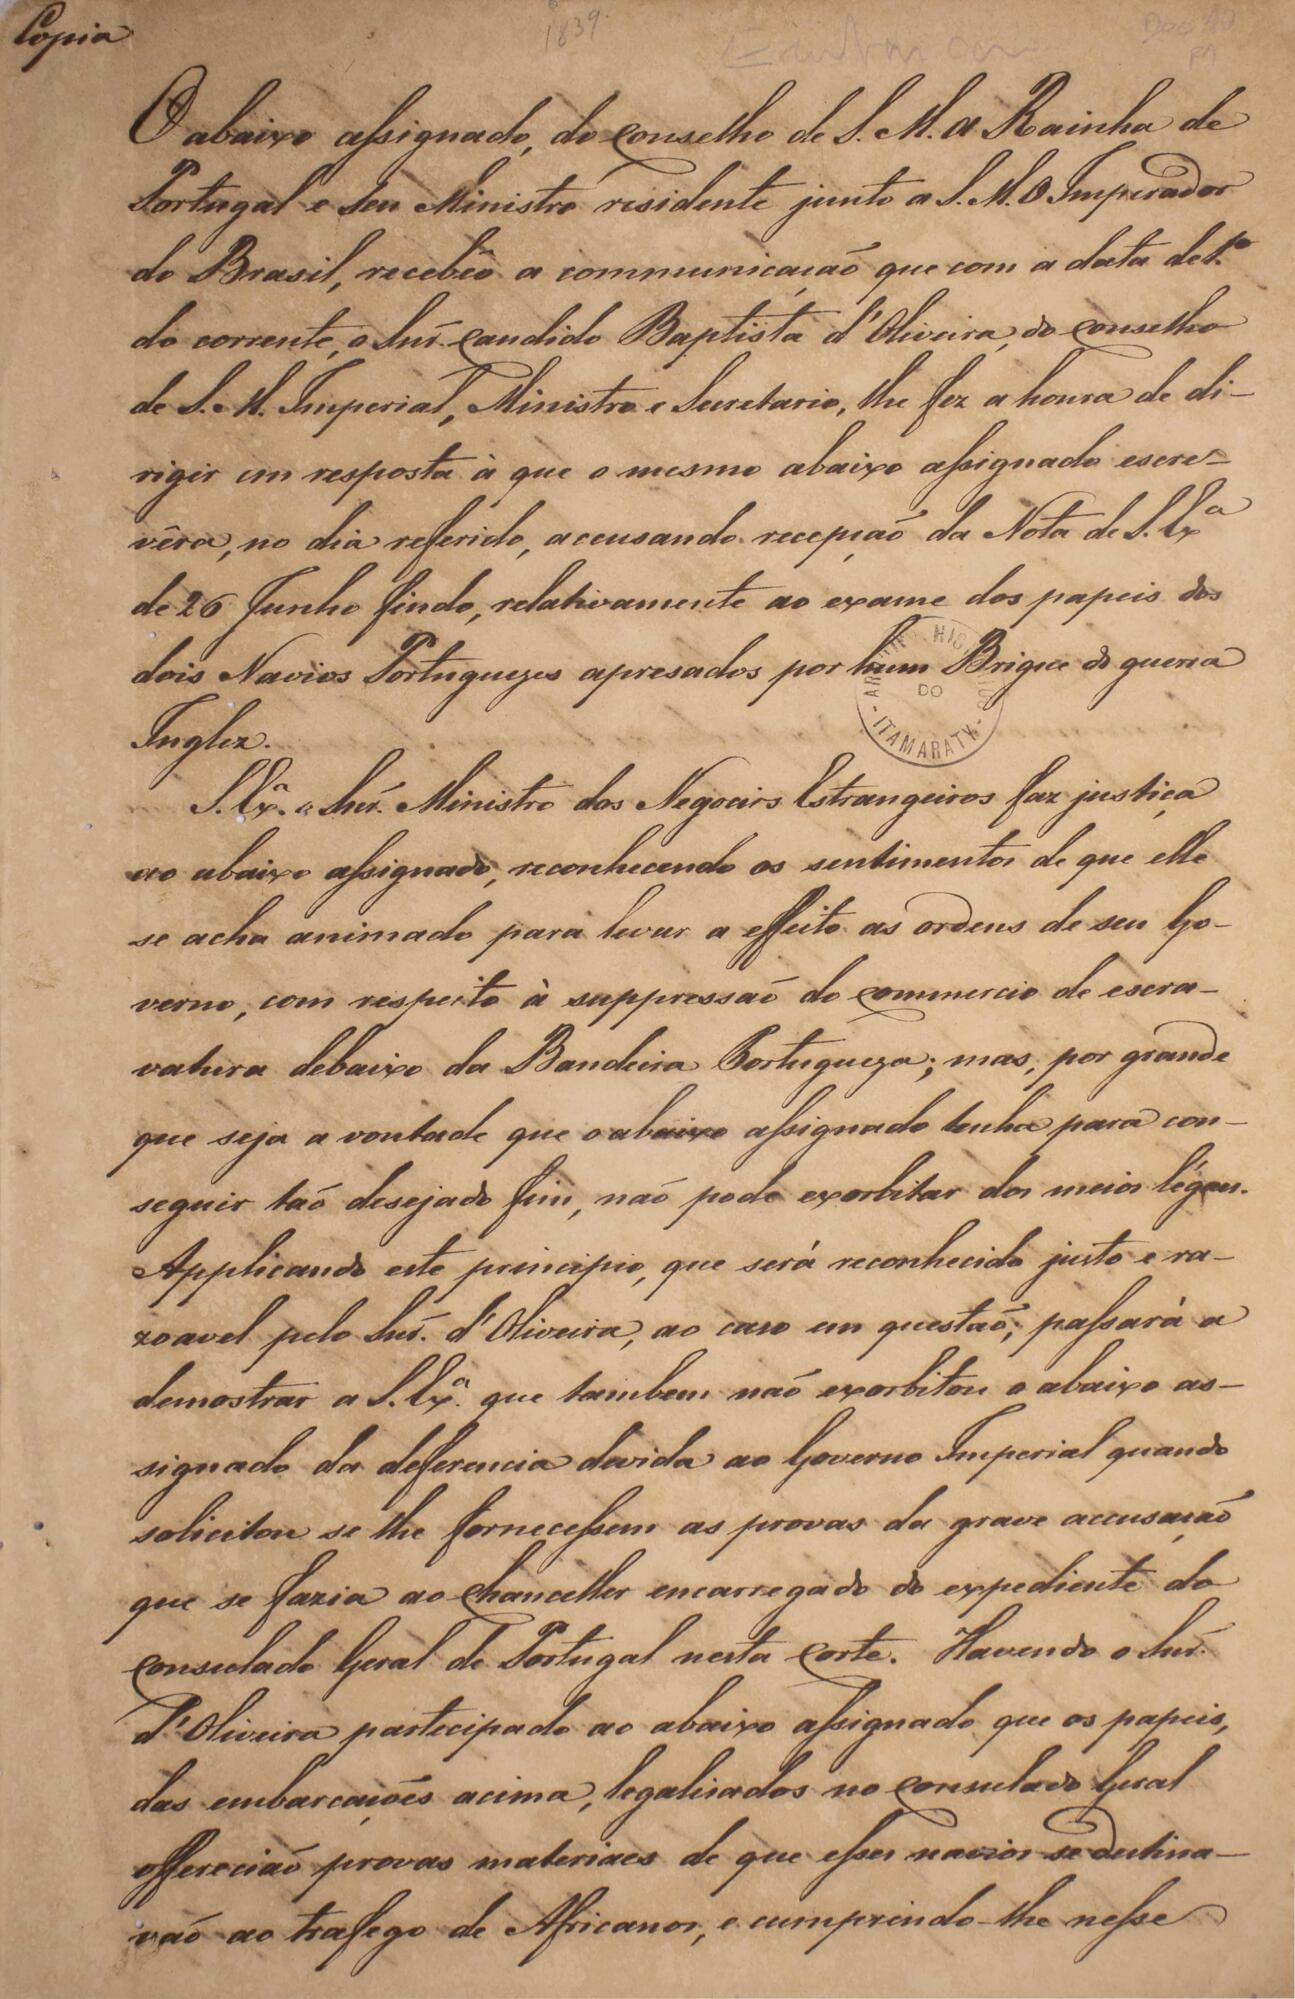 Copia
1839
O abaixo assignado, do Conselho de S. M. A Rainha de
Portugal e seu Ministro residente junto a S. M. O Imperador
do Brasil, recebêo a communicação que com a data de 1.º
do corrente, o Snr. Candido Baptista d'Oliveira, do Conselho
de S. M. Imperial, Ministro e Secretario, lhe fez a honra de di-
rigir em resposta à que o mesmo abaixo assignado escre-
vêra, no dia referido, accusando recepção da Nota de S. Exª
de 26 Junho findo, relativamente ao exame dos papeis dos
dois Navios Portuguezes apresados por hum Brigue de guerra
Inglez.
ARQUIVO HISTORICO DO ITAMARATY
S. Exª. o Snr. Ministro dos Negocios Estrangeiros faz justiça
ao abaixo assignado, reconhecendo os sentimentos de que elle
se acha animado para levar a effeito as ordens de seu Go-
verno, com respeito à suppressaõ do commercio de escra-
vatura debaixo da Bandeira Portugueza; mas, por grande
que seja a vontade que o abaixo assignado tenha para con-
seguir taõ desejado fim, naõ pode exorbitar dos meios légaes.
Applicando este principio, que será reconhecido justo e ra-
zoavel pelo Snr. d'Oliveira, ao caso em questaõ; passará a
demostrar a S. Exª. que tambem naõ exorbitou o abaixo as-
signado da deferencia devida ao Governo Imperial quando
solicitou se lhe fornecessem as provas da grave accusaçaõ
que se fazia ao Chanceller encarregado do expediente do
Consulado Geral de Portugal nesta Corte. Havendo o Snr.
d'Oliveira partecipado ao abaixo assignado que os papeis,
das embarcaçoẽs acima, legalisados no Consulado Geral
offereciaõ provas materiaes de que esses navios se destina-
vaõ ao trafego de Africanos, e cumprindo-lhe nesse